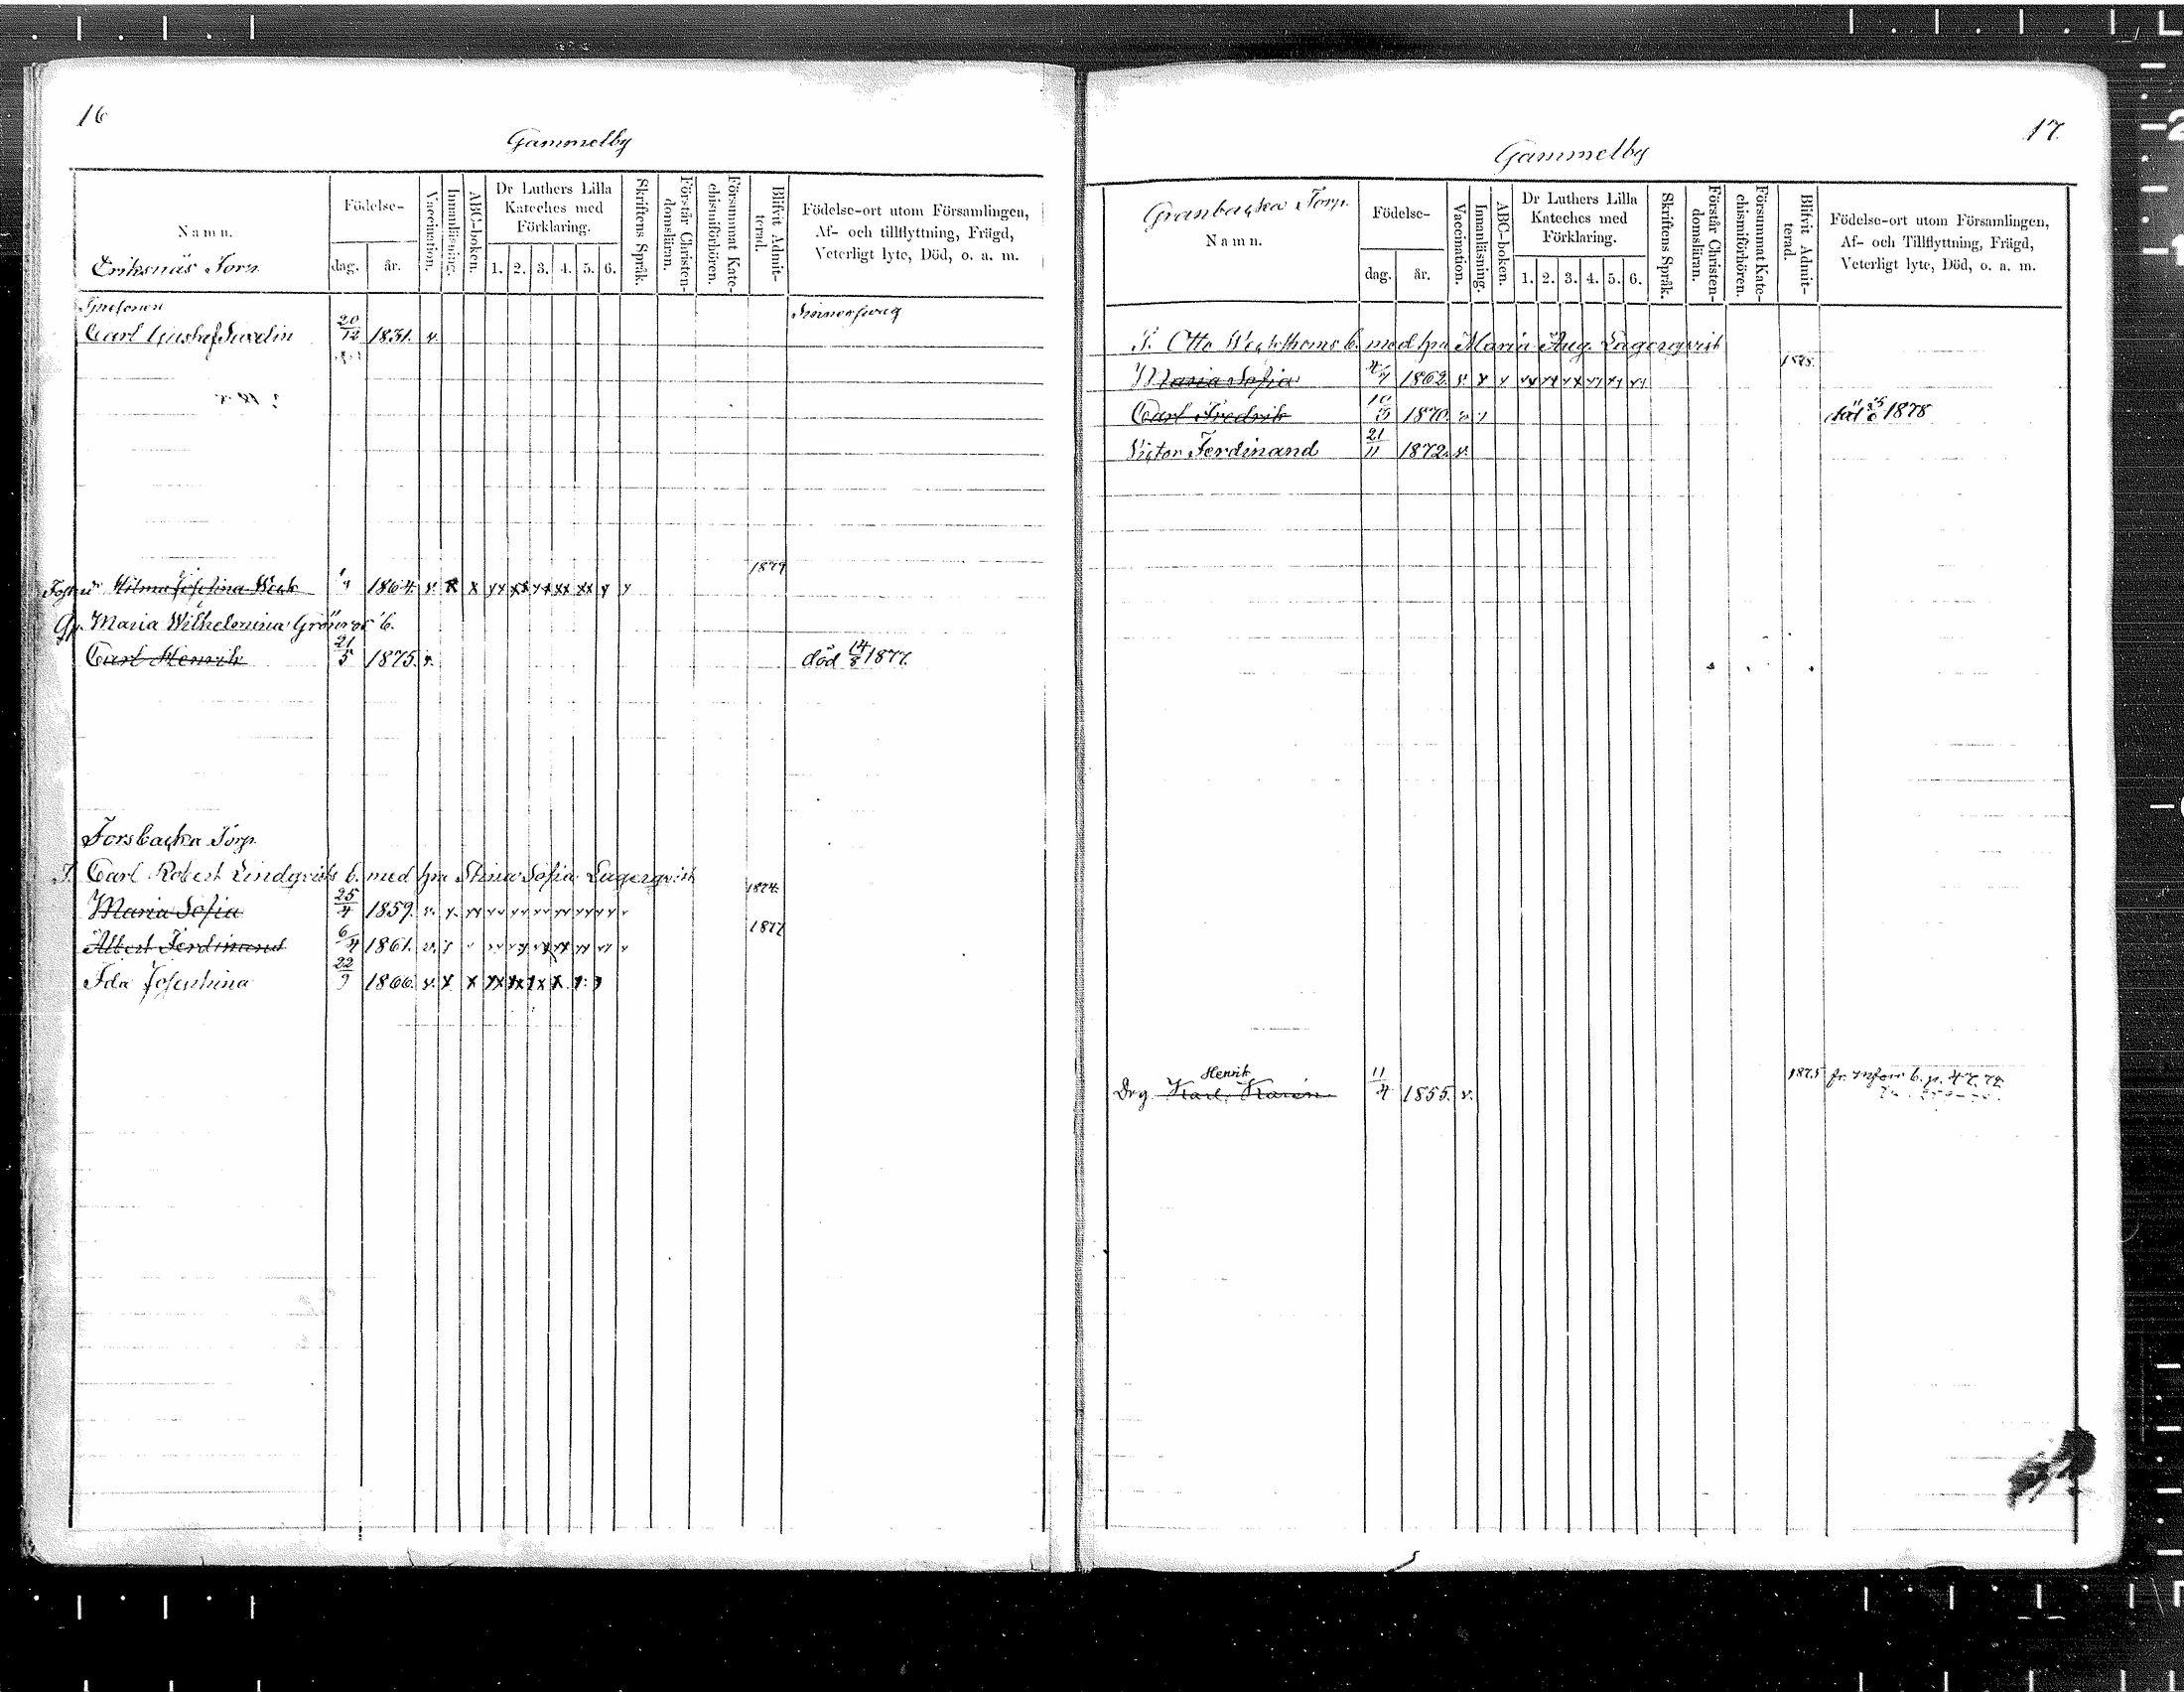 16
Gammelby
Namn.
Eriksnäs Torp.
Födelse-
dag.
år.
Vaccination.
Innanläsning.
ABC-boken.
Dr Luthers Lilla
Kateches med
Förklaring.
1. 2. 3. 4. 5. 6.
Skriftens Språk.
Förstår Christen-
domsläran.
Försummat Kate-
chismiförhören.
Blifvit Admit-
terad.
Födelse-ort utom Församlingen,
Af- och tillflyttning, Frägd,
Veterligt lyte, Död, o. a. m.
Carl Gustaf 20/12 1831. v.
1879
Wilma Josefina 1864. v. x x xx xx xx xx xx x x
Maria Wilhelmina Grönroos b.
Carl Henrik 21/5 1875. v. död 14/8 1877.
Forsbacka Torp.
T. Carl Robert Lindqvists b. med hu Stina Sofia Lagerqvist
1874.
Maria Sofia 25/4 1859. v. x. xx xx xx xx xx xx xx
1877
Albert Ferdinand 6/4 1861. v. x
Ida Josephina 22/9 1866. v. x x xx xx xx x x
17.
Gammelby
Granbacka Torp.
Namn.
Födelse-
dag.
år.
Vaccination.
Innanläsning.
ABC-boken.
Dr Luthers Lilla
Kateches med
Förklaring.
1. 2. 3. 4. 5. 6.
Skriftens Språk.
Förstår Christen-
domsläran.
Försummat Kate-
chismiförhören.
Blifvit Admit-
terad.
Födelse-ort utom Församlingen,
Af- och Tillflyttning, Frägd,
Veterligt lyte, Död, o. a. m.
T. Otto b. med hu Maria Aug. Lagerqvist
Maria Sofia 1862. v. x x xx xx xx xx xx xx
Carl Fredrik 1870. v. 1878
Victor Ferdinand 21/11 1872. v.
Henrik
Drg Karl 11/4 1855. v. 1875 b. p.